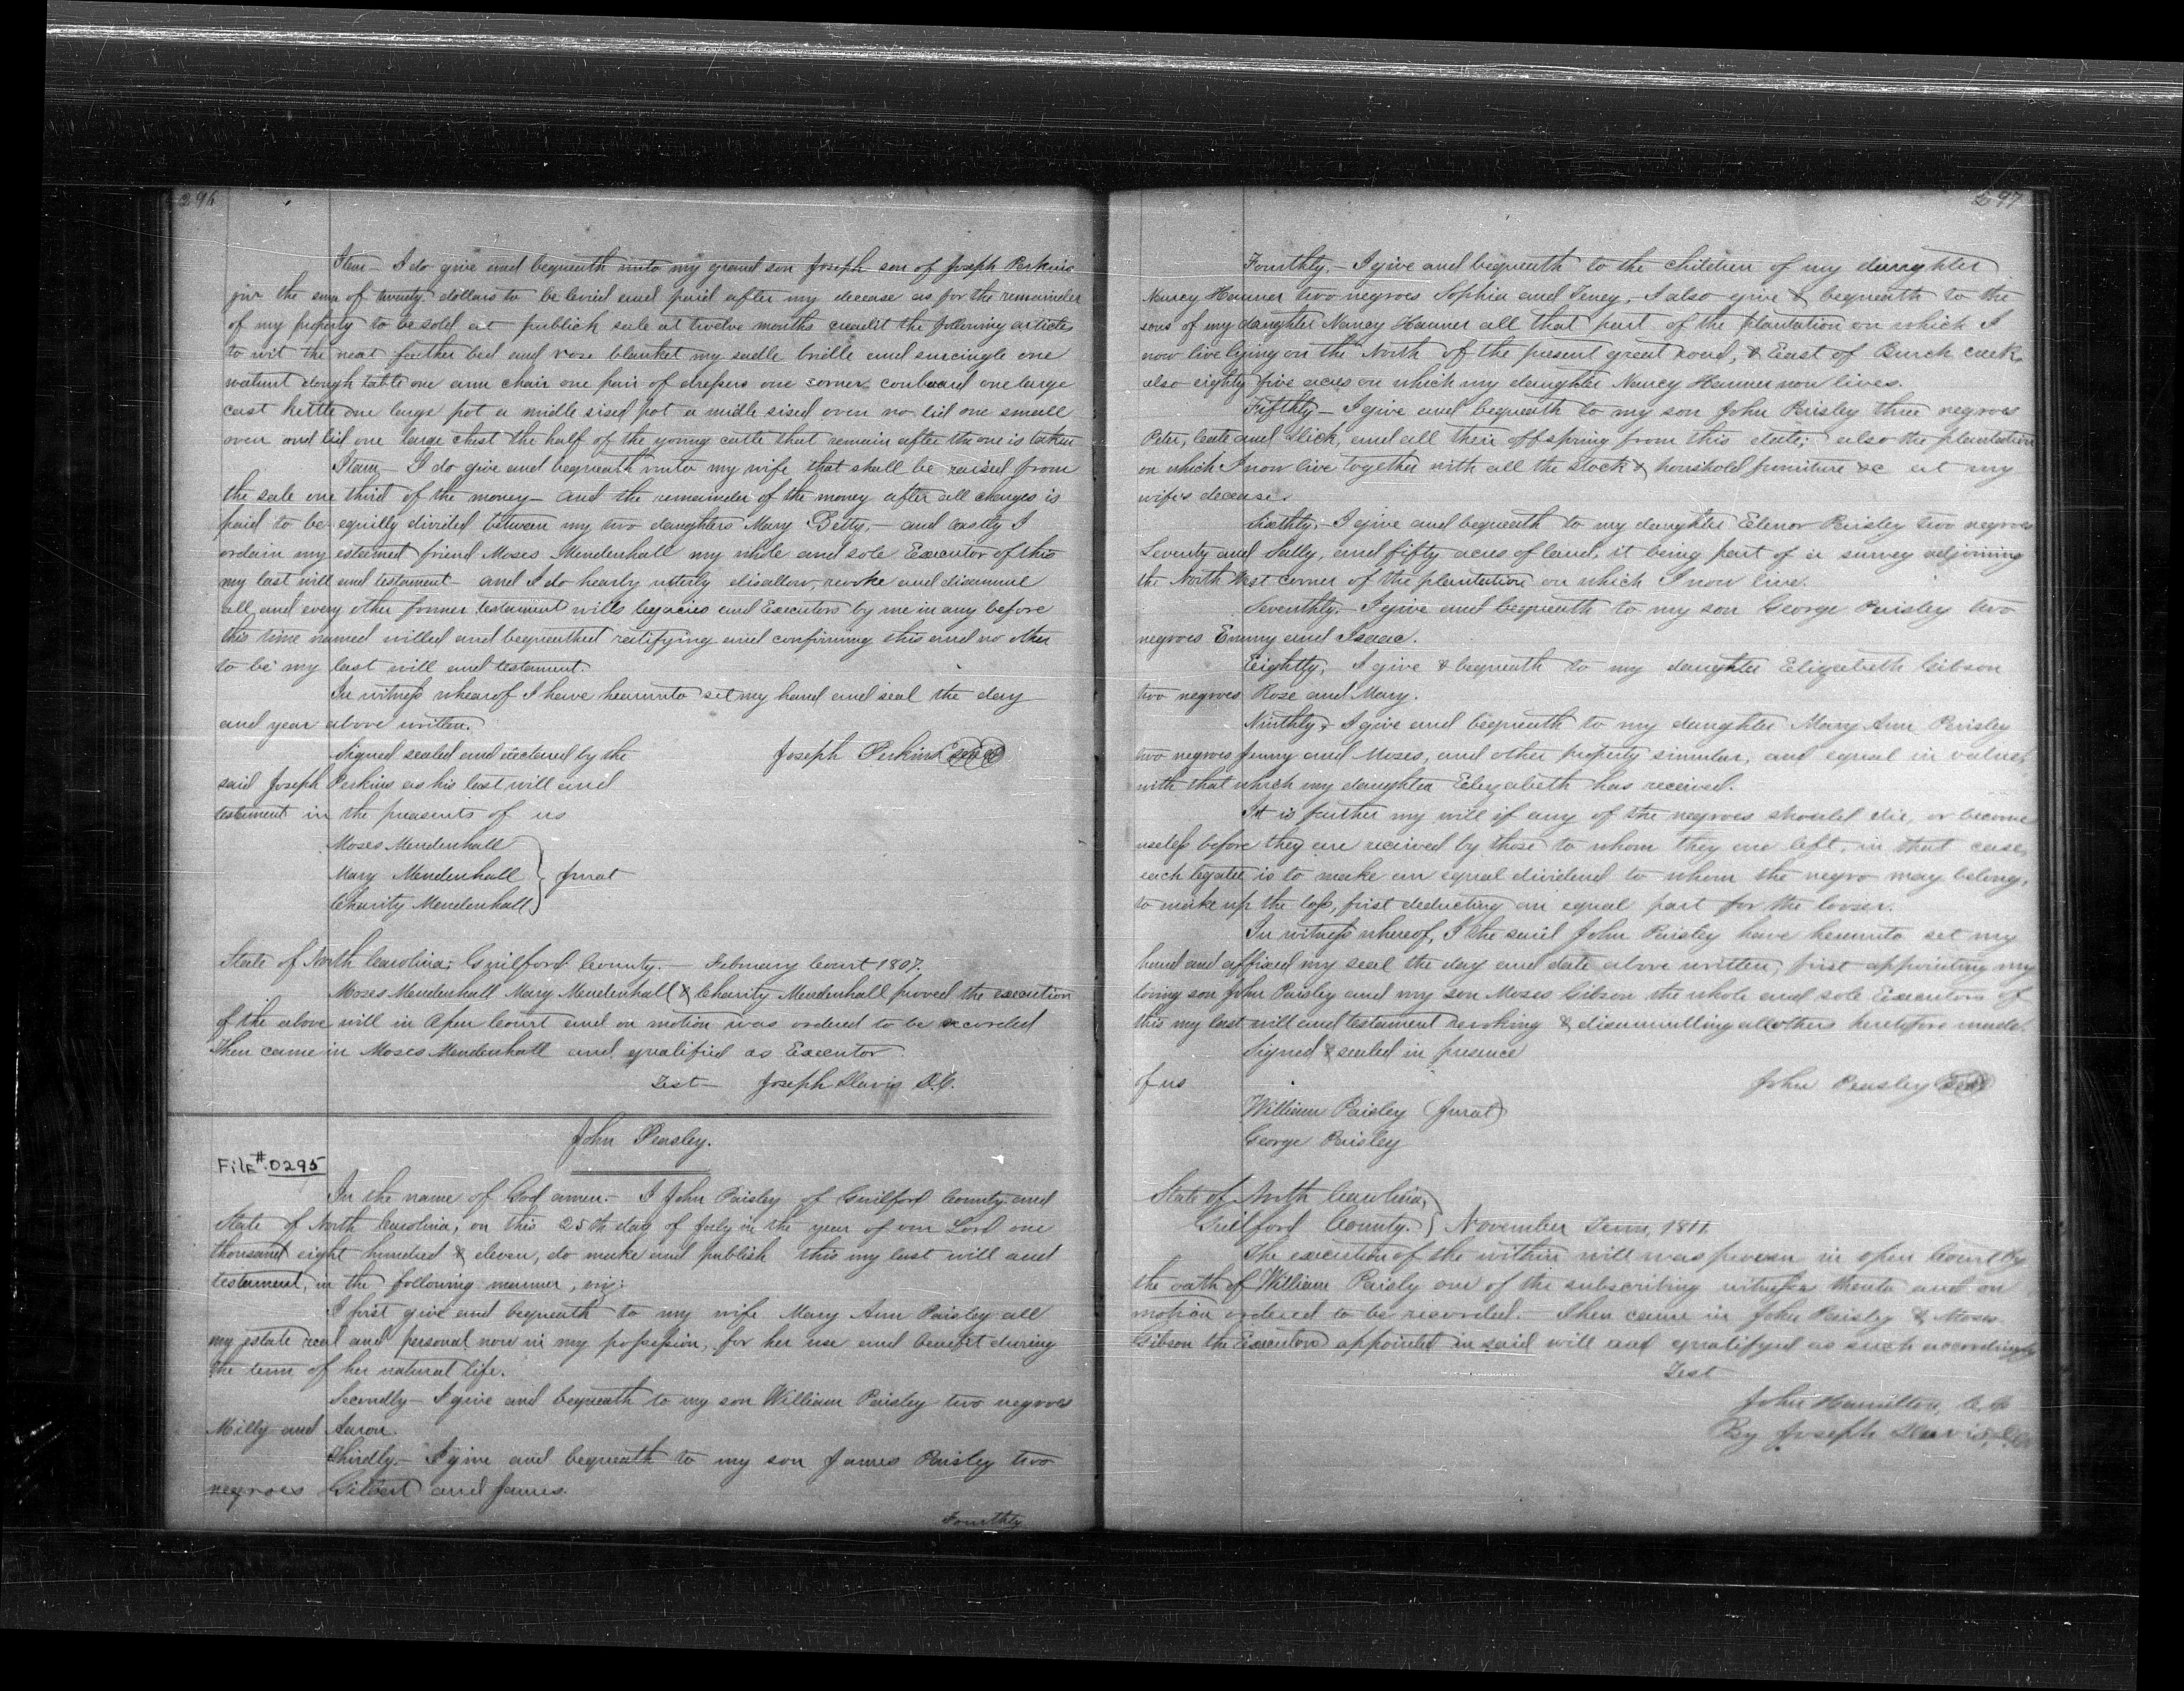 296
Item – I do give and bequeath unto my grand son Joseph son of Joseph Perkins
jnr the sum of twenty dollars to be levied and paid after my decease as for the remainder
of my property to be sold at publick sale at twelve months creadit the following articles
to wit the neat feather bed and rose blanket my sadle bridle and surcingle one
walnut dough table one arm chair one pair of drepers one corner conboard one large
cast kettle one large pot a midle sised pot a midle sised oven no lid one small
oven and lid one large chest the half of the young catle that remain after the one is taken
Item – I do give and bequeath unto my wife that shall be raised from
the sale one third of the money – and the remainder of the money after all charges is
paid to be equilly divided between my two daughters Mary Betty, – and lastly I
ordain my esteemed friend Moses Mendenhall my whole and sole Executor of this
my last will and testament – and I do hearby utterly disallow, revoke and disannul
all and every other former testament wills legacies and Executors by me in any before
this time named willed and bequeathed ratifying and confirming this and no other
to be my last will and testament.
In witness whearof I have hearunto set my hand and seal the day
and year above written.
Signed sealed and declared by the Joseph Perkins Seal
said Joseph Perkins as his last will and
testament in the preasents of us
Moses Mendenhall
Mary Mendenhall } Jurat
Charity Mendenhall
State of North Carolina; Guilford County. – February Court 1807.
Moses Mendenhall Mary Mendenhall & Charity Mendenhall proved the execution
of the above will in Open Court and on motion was ordered to be recorded
Then came in Moses Mendenhall and qualified as Executor.
Test – Joseph Davis D.C.
John Peasley.
File # 0295
In the name of God amen. – I John Paisley of Guilford County and
State of North Carolina, on this 25th day of July in the year of our Lord one
thousand eight hundred & eleven, do make and publish this my last will and
testament, in the following manner, viz:
I first give and bequeath to my wife Mary Ann Paisley all
my estate real and personal now in my possession, for her use and benefit during
the term of her natural life.
Secondly – I give and bequeath to my son William Paisley two negroes
Milly and Aaron.
Thirdly. – I give and bequeath to my son James Paisley two
negroes Gilbert and James.
Fourthly
297
Fourthly. – I give and bequeath to the children of my daughter
Nancy Hanner two negroes Sophia and Teney, I also give & bequeath to the
sons of my daughter Nancy Hanner all that part of the plantation on which I
now live lying on the North of the present great road, & East of Burch creek
also eighty five acres on which my daughter Nancy Hanner now lives.
Fifthly – I give and bequeath to my son John Paisley three negroes
Peter, Cate and Dick, and all their offspring from this date; also the plantation
on which I now live together with all the stock & houshold furniture &c at my
wife's decease.
Sixthly. – I give and bequeath to my daughter Elenor Paisley two negroes
Seventy and Sally, and fifty acres of land, it being part of a survey adjoining
the North West corner of the plantation on which I now live.
Seventhly. – I give and bequeath to my son George Paisley two
negroes Emmy and Isaac.
Eightly, I give & bequeath to my daughter Elizabeth Gibson
two negroes Rose and Mary.
Ninthly. I give and bequeath to my daughter Mary Ann Paisley
two negroes Jenny and Moses, and other property simular, and equal in value,
with that which my daughter Elizabeth has received.
It is further my will if any of the negroes should die, or become
useless before they are received by those to whom they are left, in that case,
each legatee is to make an equal dividend to whom the negro may belong,
to make up the loss, first deducting an equal part for the looser.
In witness whereof, I the said John Paisley have hereunto set my
hand and affixed my seal the day and date above written, first appointing my
loving son John Paisley and my son Moses Gibson the whole and sole Executors of
this my last will and testament revoking & disannulling all others heretofore made.
Signed & sealed in presence
of us John Peasley Seal
William Paisley (Jurat)
George Paisley
State of North Carolina,
Guilford County. } November Term, 1811.
The execution of the within will was proven in open Court by
the oath of William Paisly one of the subscribing witnesses thereto and on
motion ordered to be recorded. – Then came in John Paisley & Moses
Gibson the Executors appointed in said will and qualifyed as such accordingly
Test
John Hamilton, C.C.
By Joseph Davis, D.C.